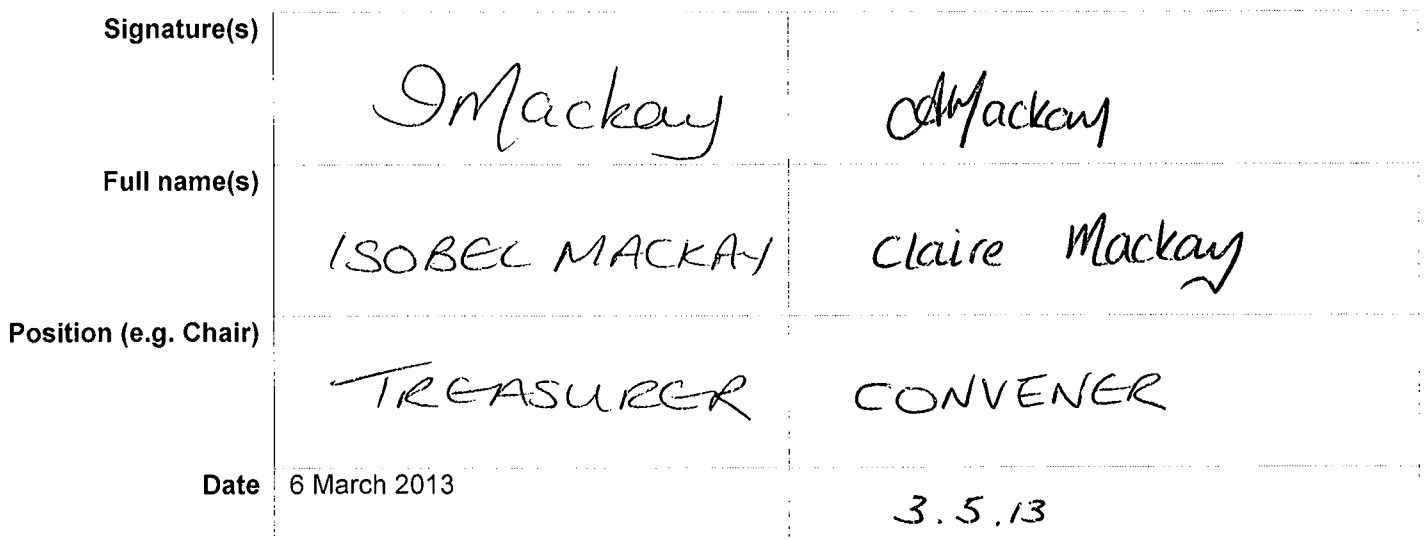 Signature(s)
IMackay CAMackay
Full name(s)
ISOBEL MACKAY Claire Mackay
Position (e.g. Chair)
TREASURER CONVENER
Date 6 March 2013 3.5.13